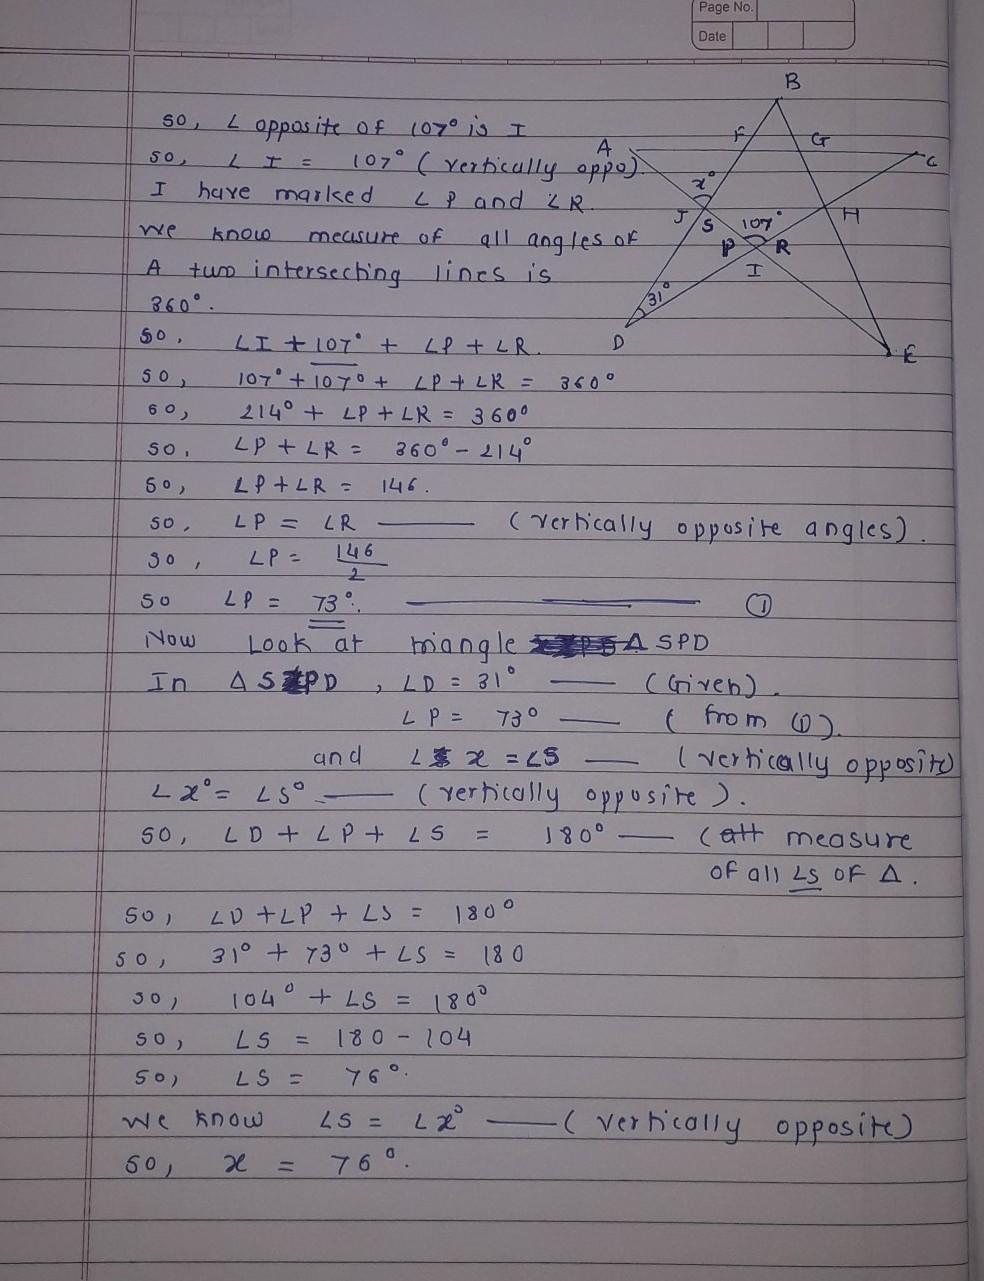 Page No.
Date
B
so, ∠ opposite of 107° is I
A
F
G
C
so, ∠ I = 107° ( vertically oppo).
x°
I have marked ∠ P and ∠R.
J
S
107°
H
we know measure of all angles of
P
R
A two intersecting lines is
I
360°.
31°
D
E
so, ∠I + 107° + ∠P + ∠R.
so, 107° + 107° + ∠P + ∠R = 360°
so, 214° + ∠P + ∠R = 360°
so, ∠P + ∠R = 360° - 214°
so, ∠P + ∠R = 146.
so, ∠P = ∠R —— ( vertically opposite angles).
so, ∠P = 146/2
so ∠P = 73°. —— ①
Now Look at triangle Δ SPD
In Δ SPD , ∠D = 31° —— (Given).
∠P = 73° —— ( from ①).
and ∠ x = ∠S —— ( vertically opposite)
∠x° = ∠S° —— ( vertically opposite ).
so, ∠D + ∠P + ∠S = 180° —— (all measure
of all ∠s of Δ.
so, ∠D + ∠P + ∠S = 180°
so, 31° + 73° + ∠S = 180
so, 104° + ∠S = 180°
so, ∠S = 180 - 104
so, ∠S = 76°.
We know ∠S = ∠x° —— ( vertically opposite)
so, x = 76°.